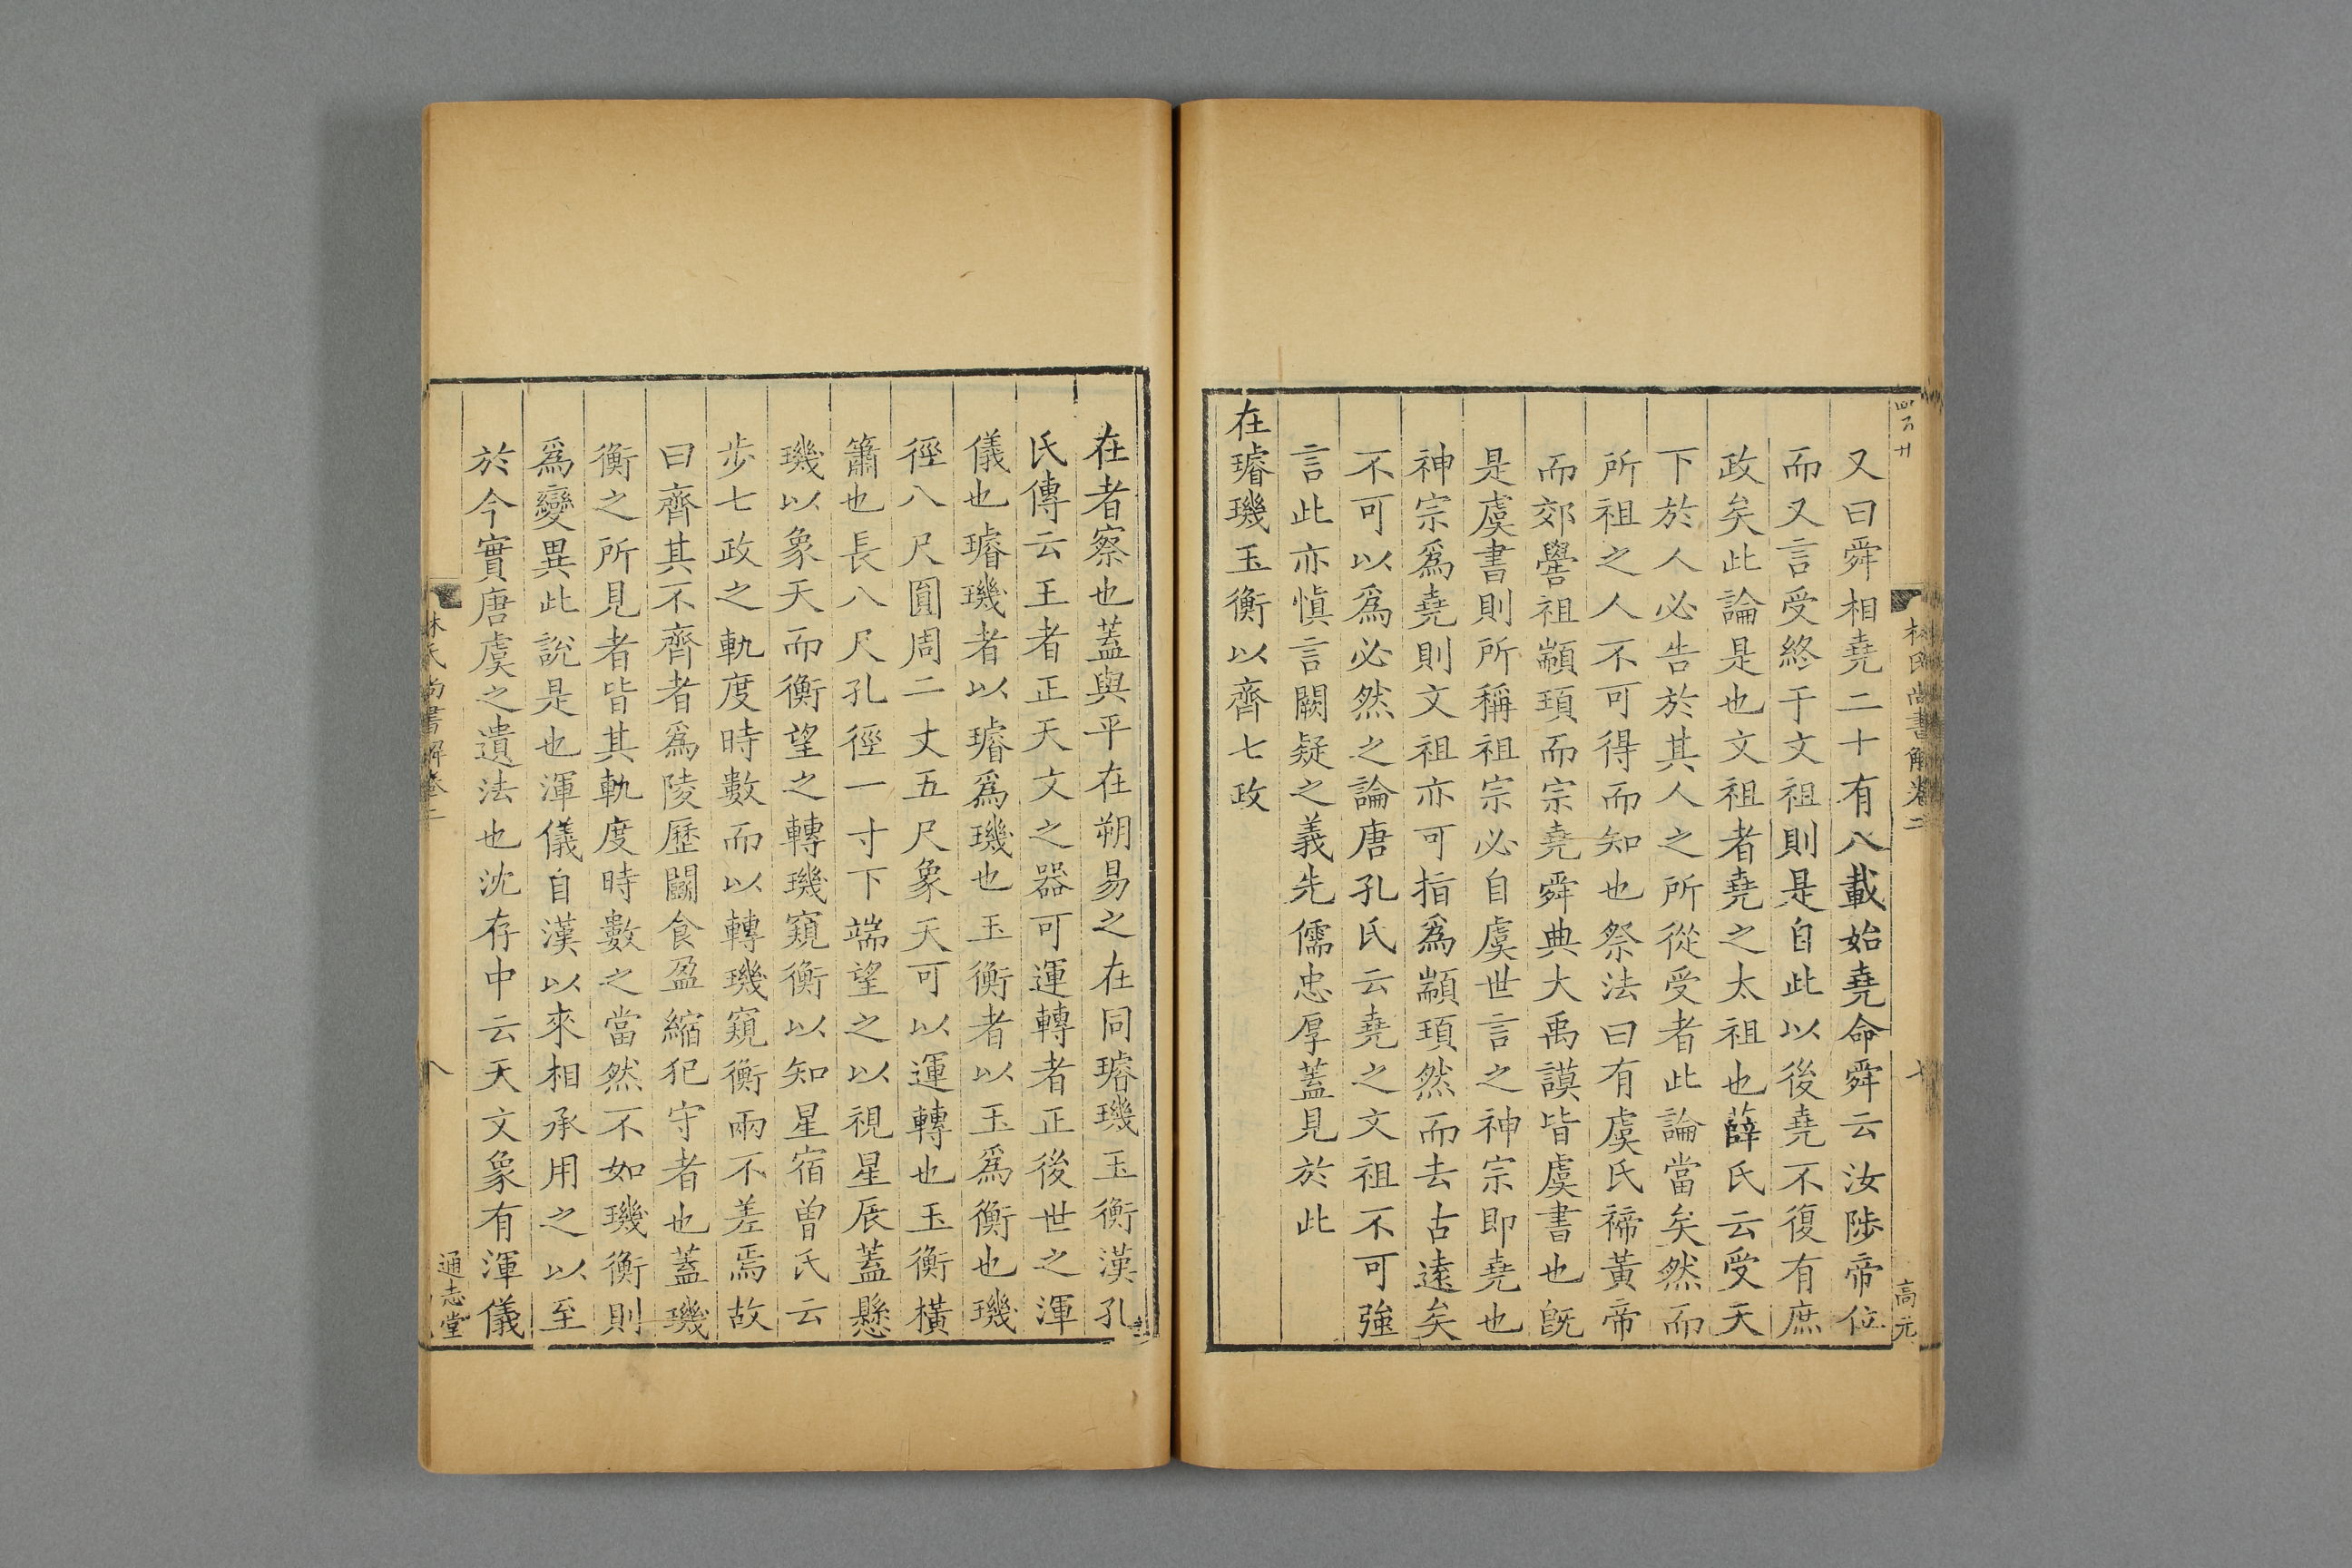 又曰舜相堯二十有八載始堯命舜云汝陟帝位
而又言受終于文祖則是自此以後堯不復有庶
政矣此論是也文祖者堯之太祖也薛氏云受天
下於人必告於其人之所從受者此論當矣然而
所祖之人不可得而知也祭法曰有虞氏禘黃帝
而郊嚳祖顓頊而宗堯舜典大禹謨皆虞書也旣
是虞書則所稱祖宗必自虞世言之神宗即堯也
神宗爲堯則文祖亦可指爲顓頊然而去古遠矣
不可以爲必然之論唐孔氏云堯之文祖不可強
言此亦愼言闕疑之義先儒忠厚蓋見於此
在璿璣玉衡以齊七政
林氏尚書解卷二
七
高元
在者察也蓋與平在朔易之在同璿璣玉衡漢孔
氏傳云王者正天文之器可運轉者正後世之渾
儀也璿璣者以璿爲璣也玉衡者以玉爲衡也璣
徑八尺圓周二丈五尺象天可以運轉也玉衡橫
簫也長八尺孔徑一寸下端望之以視星辰蓋懸
璣以象天而衡望之轉璣窺衡以知星宿曾氏云
步七政之軌度時數而以轉璣窺衡兩不差焉故
曰齊其不齊者爲陵歷鬭食盈縮犯守者也蓋璣
衡之所見者皆其軌度時數之當然不如璣衡則
爲變異此說是也渾儀自漢以來相承用之以至
於今實唐虞之遺法也沈存中云天文象有渾儀
林氏尚書解卷二
八
通志堂